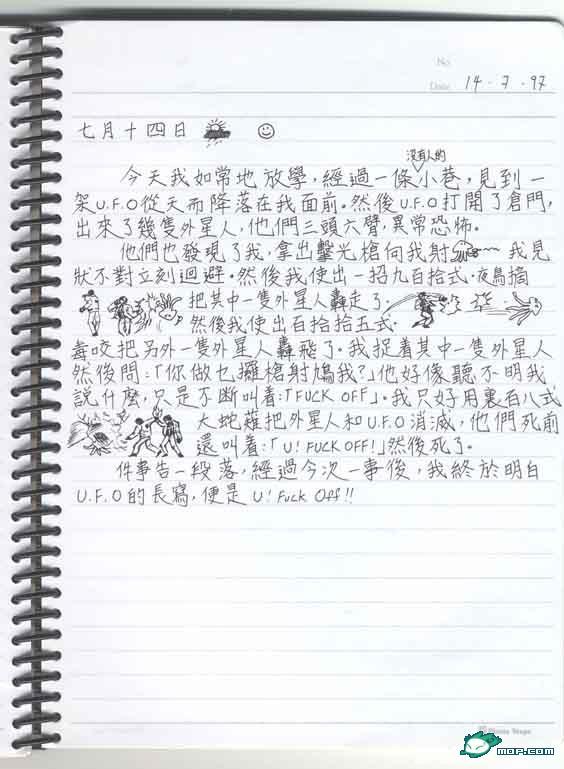 No
Date 14.7.97
七月十四日
沒有人的
今天我如常地放學，經過一條小巷，見到一
架U.F.O從天而降落在我面前。然後U.F.O打開了倉門，
出來了幾隻外星人，他們三頭六臂，異常恐怖。
他們也發現了我，拿出擊光槍向我射 我見
狀不對立刻迴避。然後我使出一招九百拾式·夜鳥摘
把其中一隻外星人轟走了。
然後我使出百拾拾五式·
毒咬把另外一隻外星人轟飛了。我捉着其中一隻外星人
然後問：「你做乜攞槍射鳩我？」他好像聽不明我
說什麼，只是不斷叫着：「FUCK OFF」。我只好用裏百八式
大蛇薙把外星人和U.F.O消滅，他們死前
還叫着：「U! FUCK OFF!」然後死了。
件事告一段落，經過今次一事後，我終於明白
U.F.O的長寫，便是U! Fuck Off!!
MOP.COM